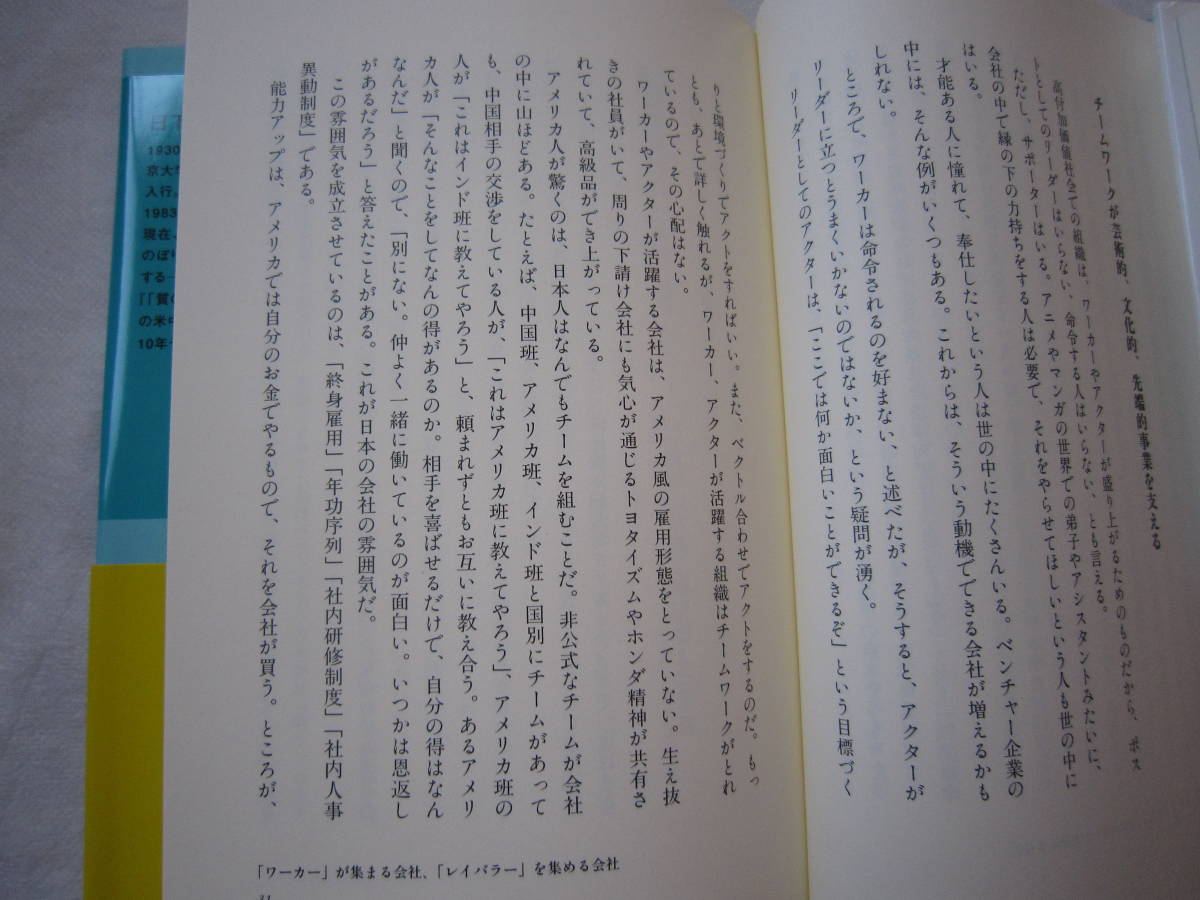 チームワークが芸術的、文化的、先端的事業を支える
高付加価値社会での組織は、ワーカーやアクターが盛り上がるためのものだから、ボス
トとしてのリーダーはいらない、命令する人はいらない、とも言える。
ただし、サポーターはいる。アニメやマンガの世界での弟子やアシスタントみたいに、
会社の中で縁の下の力持ちをする人は必要で、それをやらせてほしいという人も世の中に
はいる。
才能ある人に憧れて、奉仕したいという人は世の中にたくさんいる。ベンチャー企業の
中には、そんな例がいくつもある。これからは、そういう動機でできる会社が増えるかも
しれない。
ところで、ワーカーは命令されるのを好まない、と述べたが、そうすると、アクターが
リーダーに立つとうまくいかないのではないか、という疑問が湧く。
リーダーとしてのアクターは、「ここでは何か面白いことができるぞ」という目標づく
りと環境づくりでアクトをすればいい。また、ベクトル合わせでアクトをするのだ。もっ
とも、あとで詳しく触れるが、ワーカー、アクターが活躍する組織はチームワークがとれ
ているので、その心配はない。
ワーカーやアクターが活躍する会社は、アメリカ風の雇用形態をとっていない。生え抜
きの社員がいて、周りの下請け会社にも気心が通じるトヨタイズムやホンダ精神が共有さ
れていて、高級品ができ上がっている。
アメリカ人が驚くのは、日本人はなんでもチームを組むことだ。非公式なチームが会社
の中に山ほどある。たとえば、中国班、アメリカ班、インド班と国別にチームがあって
も、中国相手の交渉をしている人が、「これはアメリカ班に教えてやろう」、アメリカ班の
人が「これはインド班に教えてやろう」と、頼まれずともお互いに教え合う。あるアメリ
カ人が「そんなことをしてなんの得があるのか。相手を喜ばせるだけで、自分の得はなん
なんだ」と聞くので、「別にない。仲よく一緒に働いているのが面白い。いつかは恩返し
があるだろう」と答えたことがある。これが日本の会社の雰囲気だ。
この雰囲気を成立させているのは、「終身雇用」「年功序列」「社内研修制度」「社内人事
異動制度」である。
能力アップは、アメリカでは自分のお金でやるもので、それを会社が買う。ところが、
「ワーカー」が集まる会社、「レイバラー」を集める会社
1930
京大
入行。
1983
現在、
のぼり
する
『「質の
の米中
10年